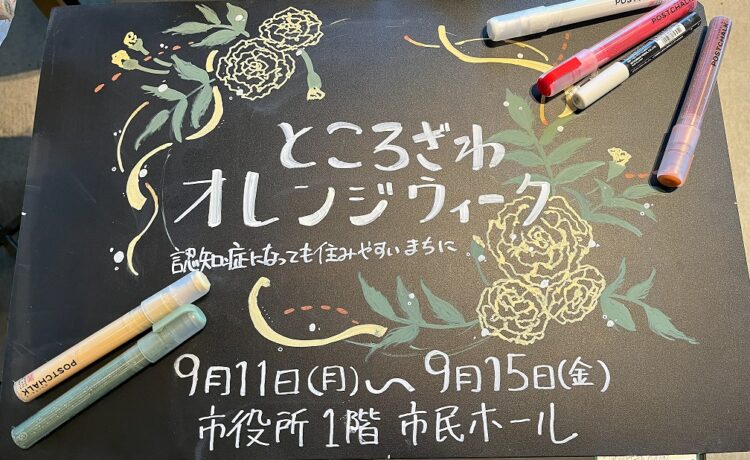 ところざわ
オレンジウィーク
認知症になっても住みやすいまちに
9月11日(月)～9月15日(金)
市役所1階 市民ホール
POSTCHALK
POSTCHALK
POSTCHALK
POSTCHALK